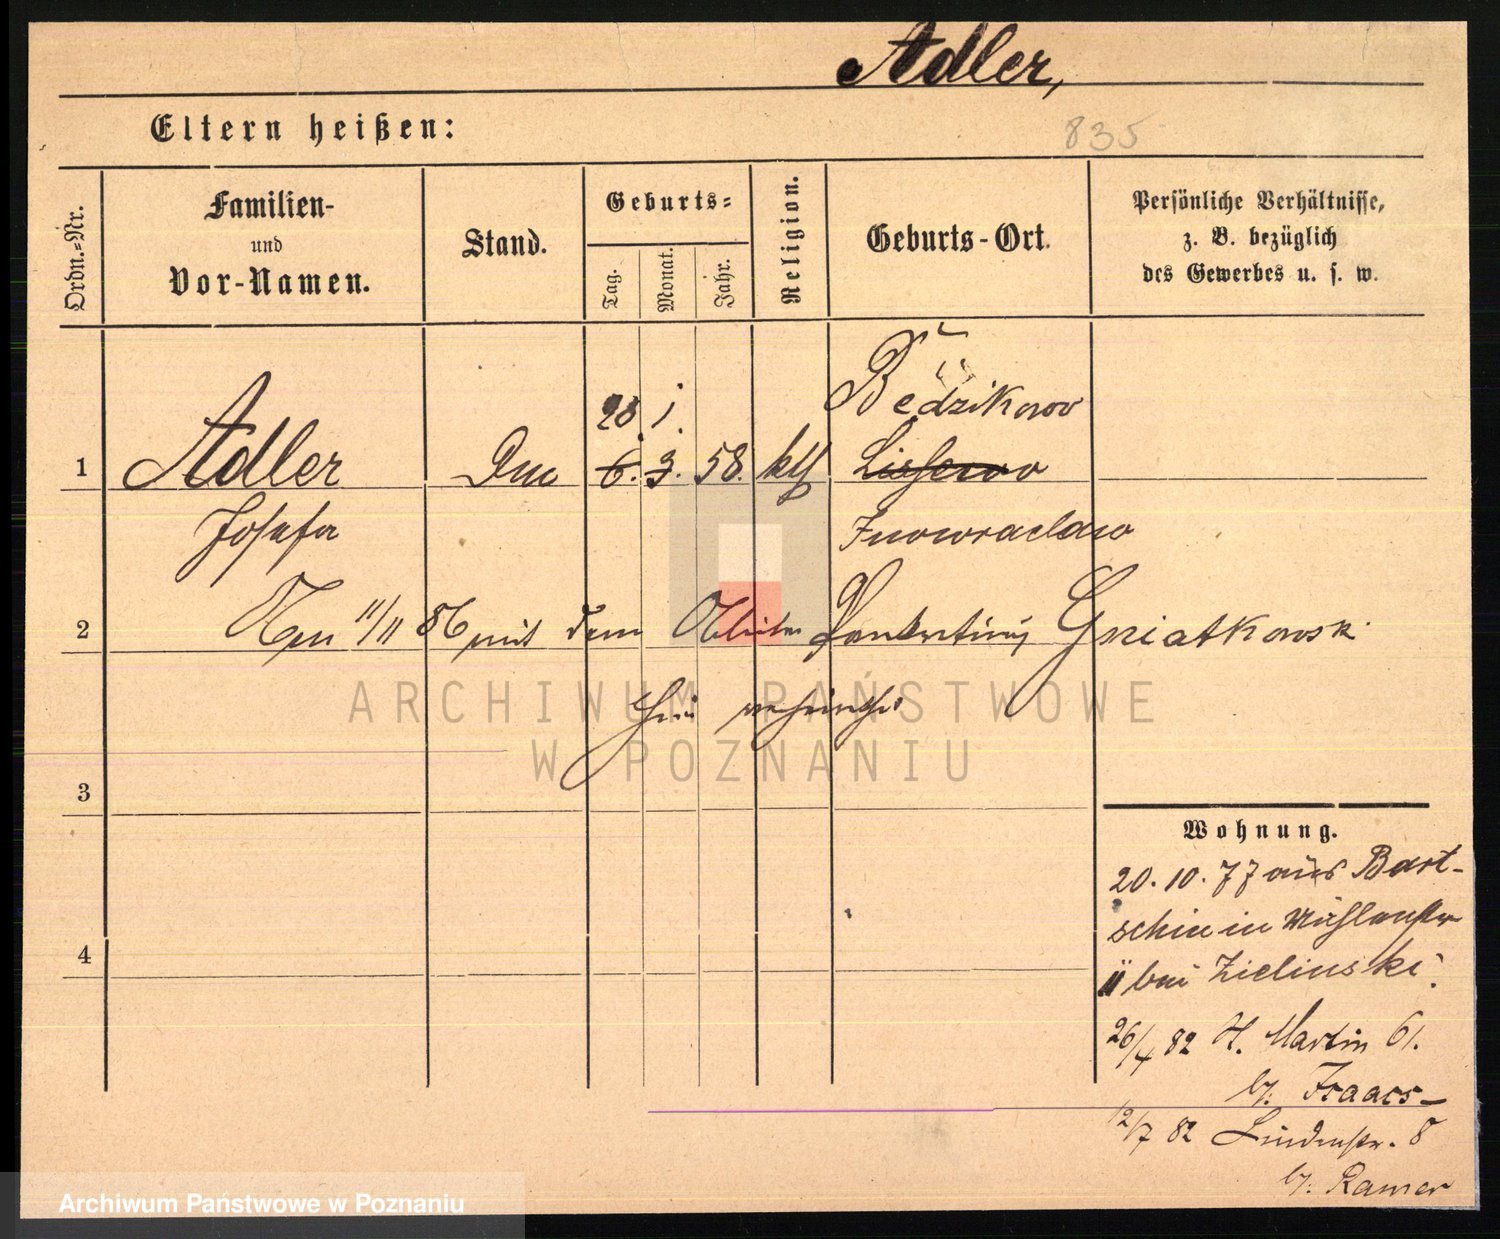 Adler,
Eltern heißen:
835
Ordn.-Nr.
Familien-
und
Vor-Namen.
Stand.
Geburts-
Tag.
Monat.
Jahr.
Religion.
Geburts-Ort.
Persönliche Verhältnisse,
z. B. bezüglich
des Gewerbes u. s. w.
28. 1. Będzikowo
1 Adler 6. 3. 58. kth Lissewo
Josefa Inowraclaw
2 11/11 86 mit dem Gniatkowski
ARCHIWUM PAŃSTWOWE
W POZNANIU
3
4
Wohnung.
20. 10. 77 aus Bart-
schin in Mühlenstr
11 bei Zielinski.
26/4 82 H. Martin 61.
b/. Isaacs-
12/7 82 Lindenstr. 8
b/. Ramer
Archiwum Państwowe w Poznaniu